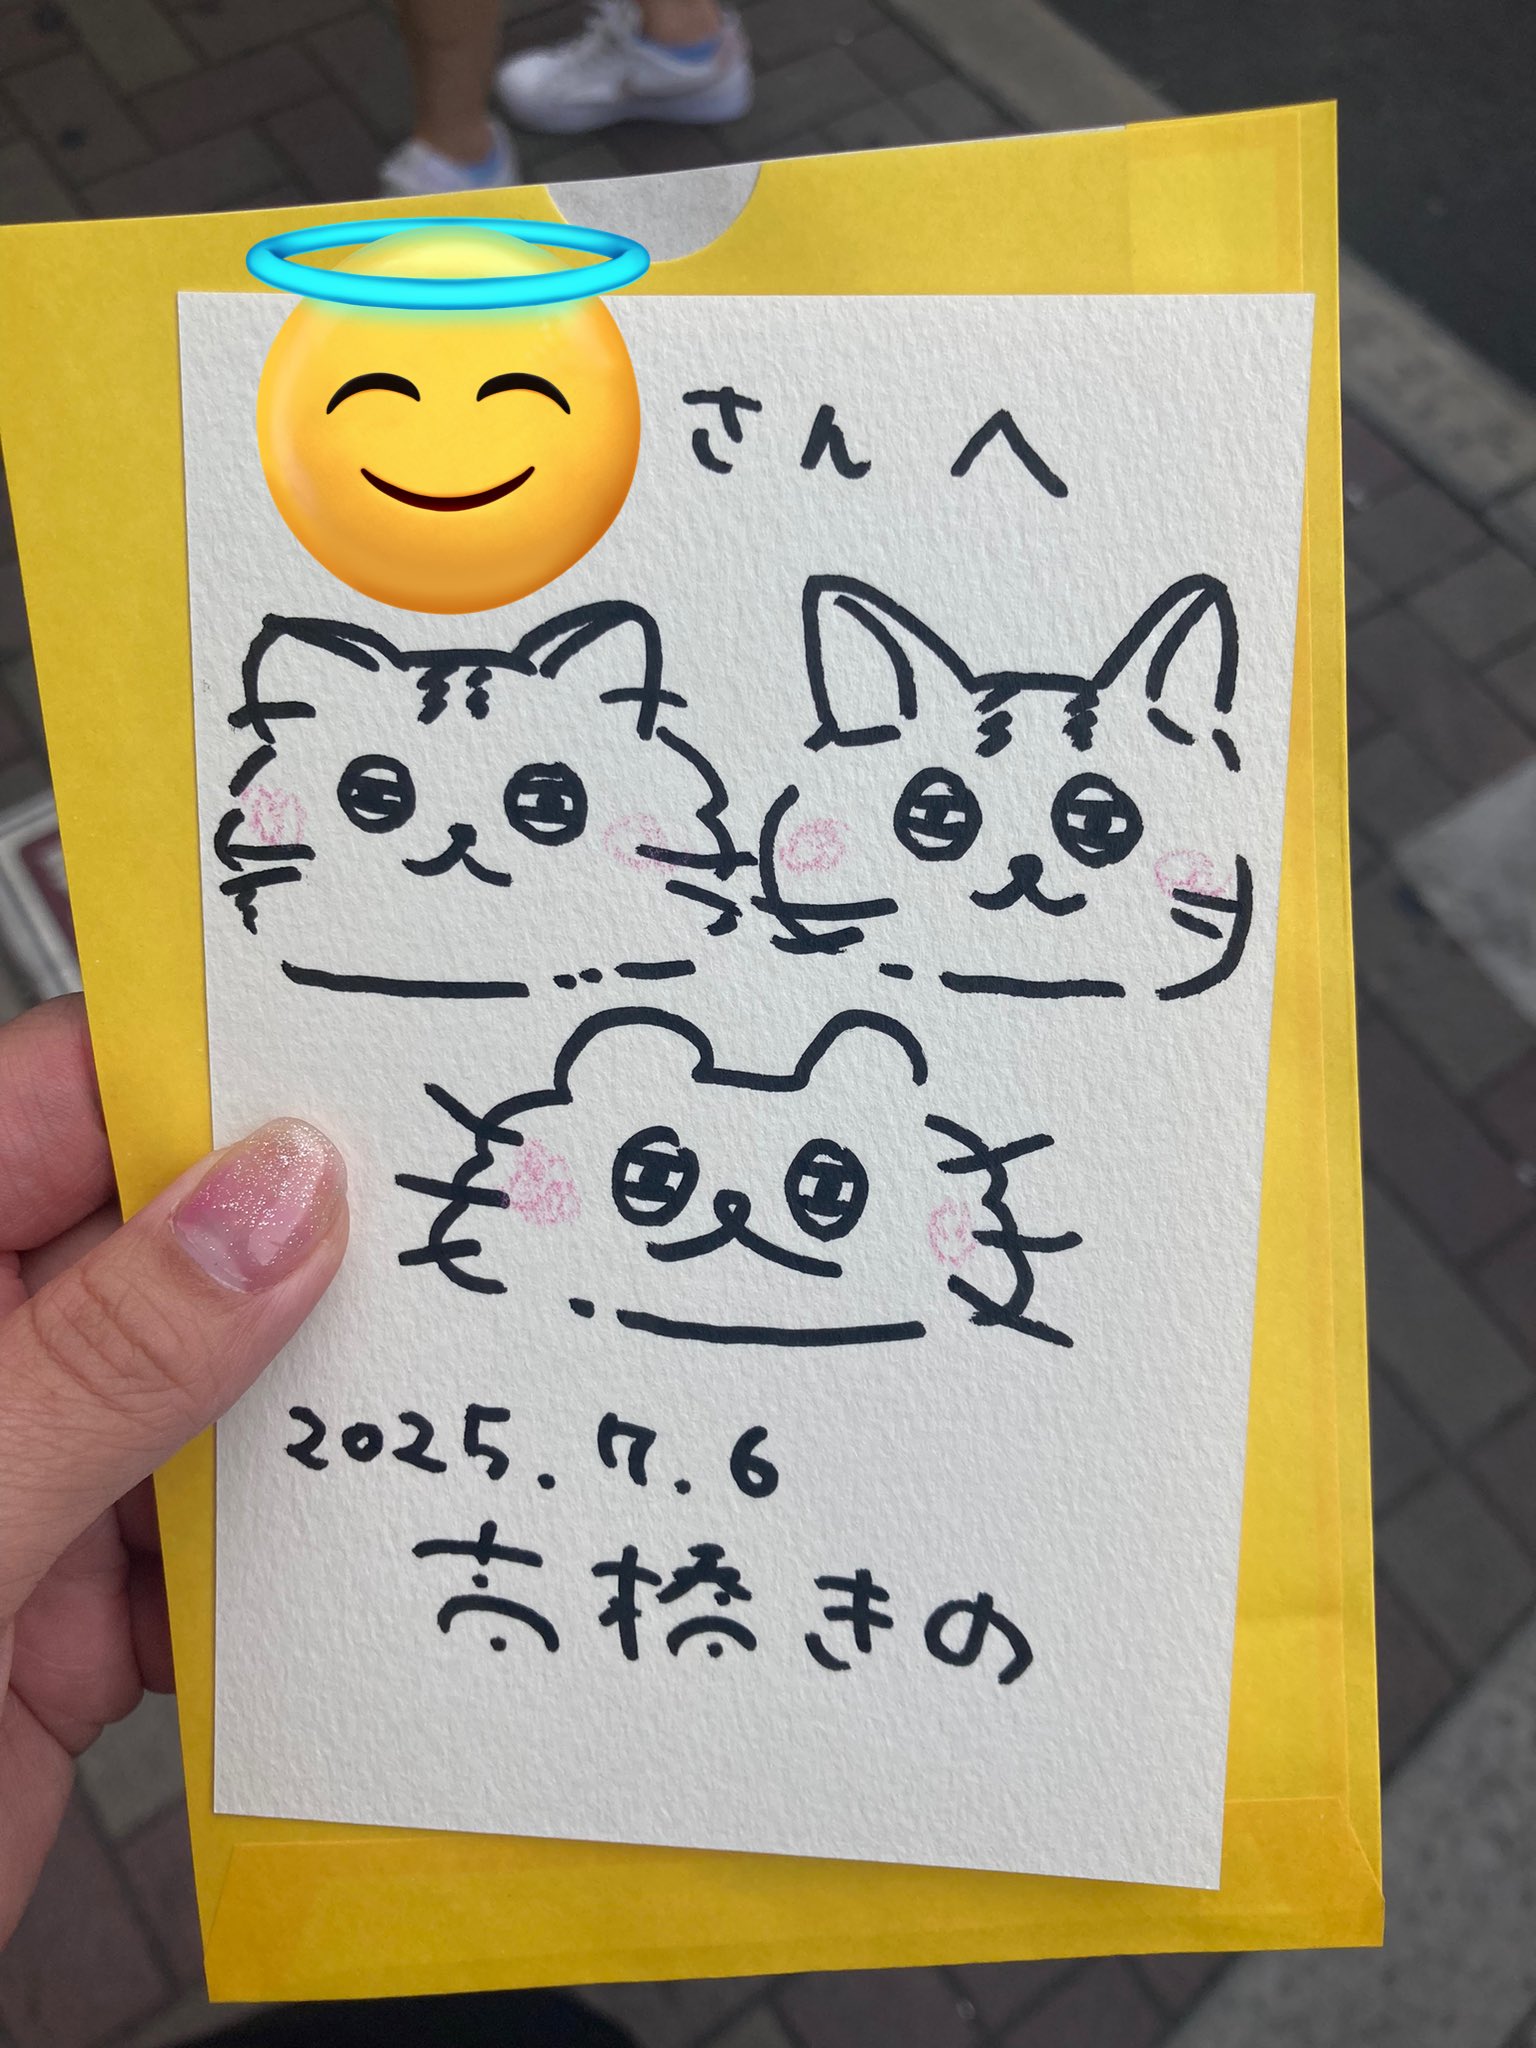 さんへ
2025.7.6
高橋きの